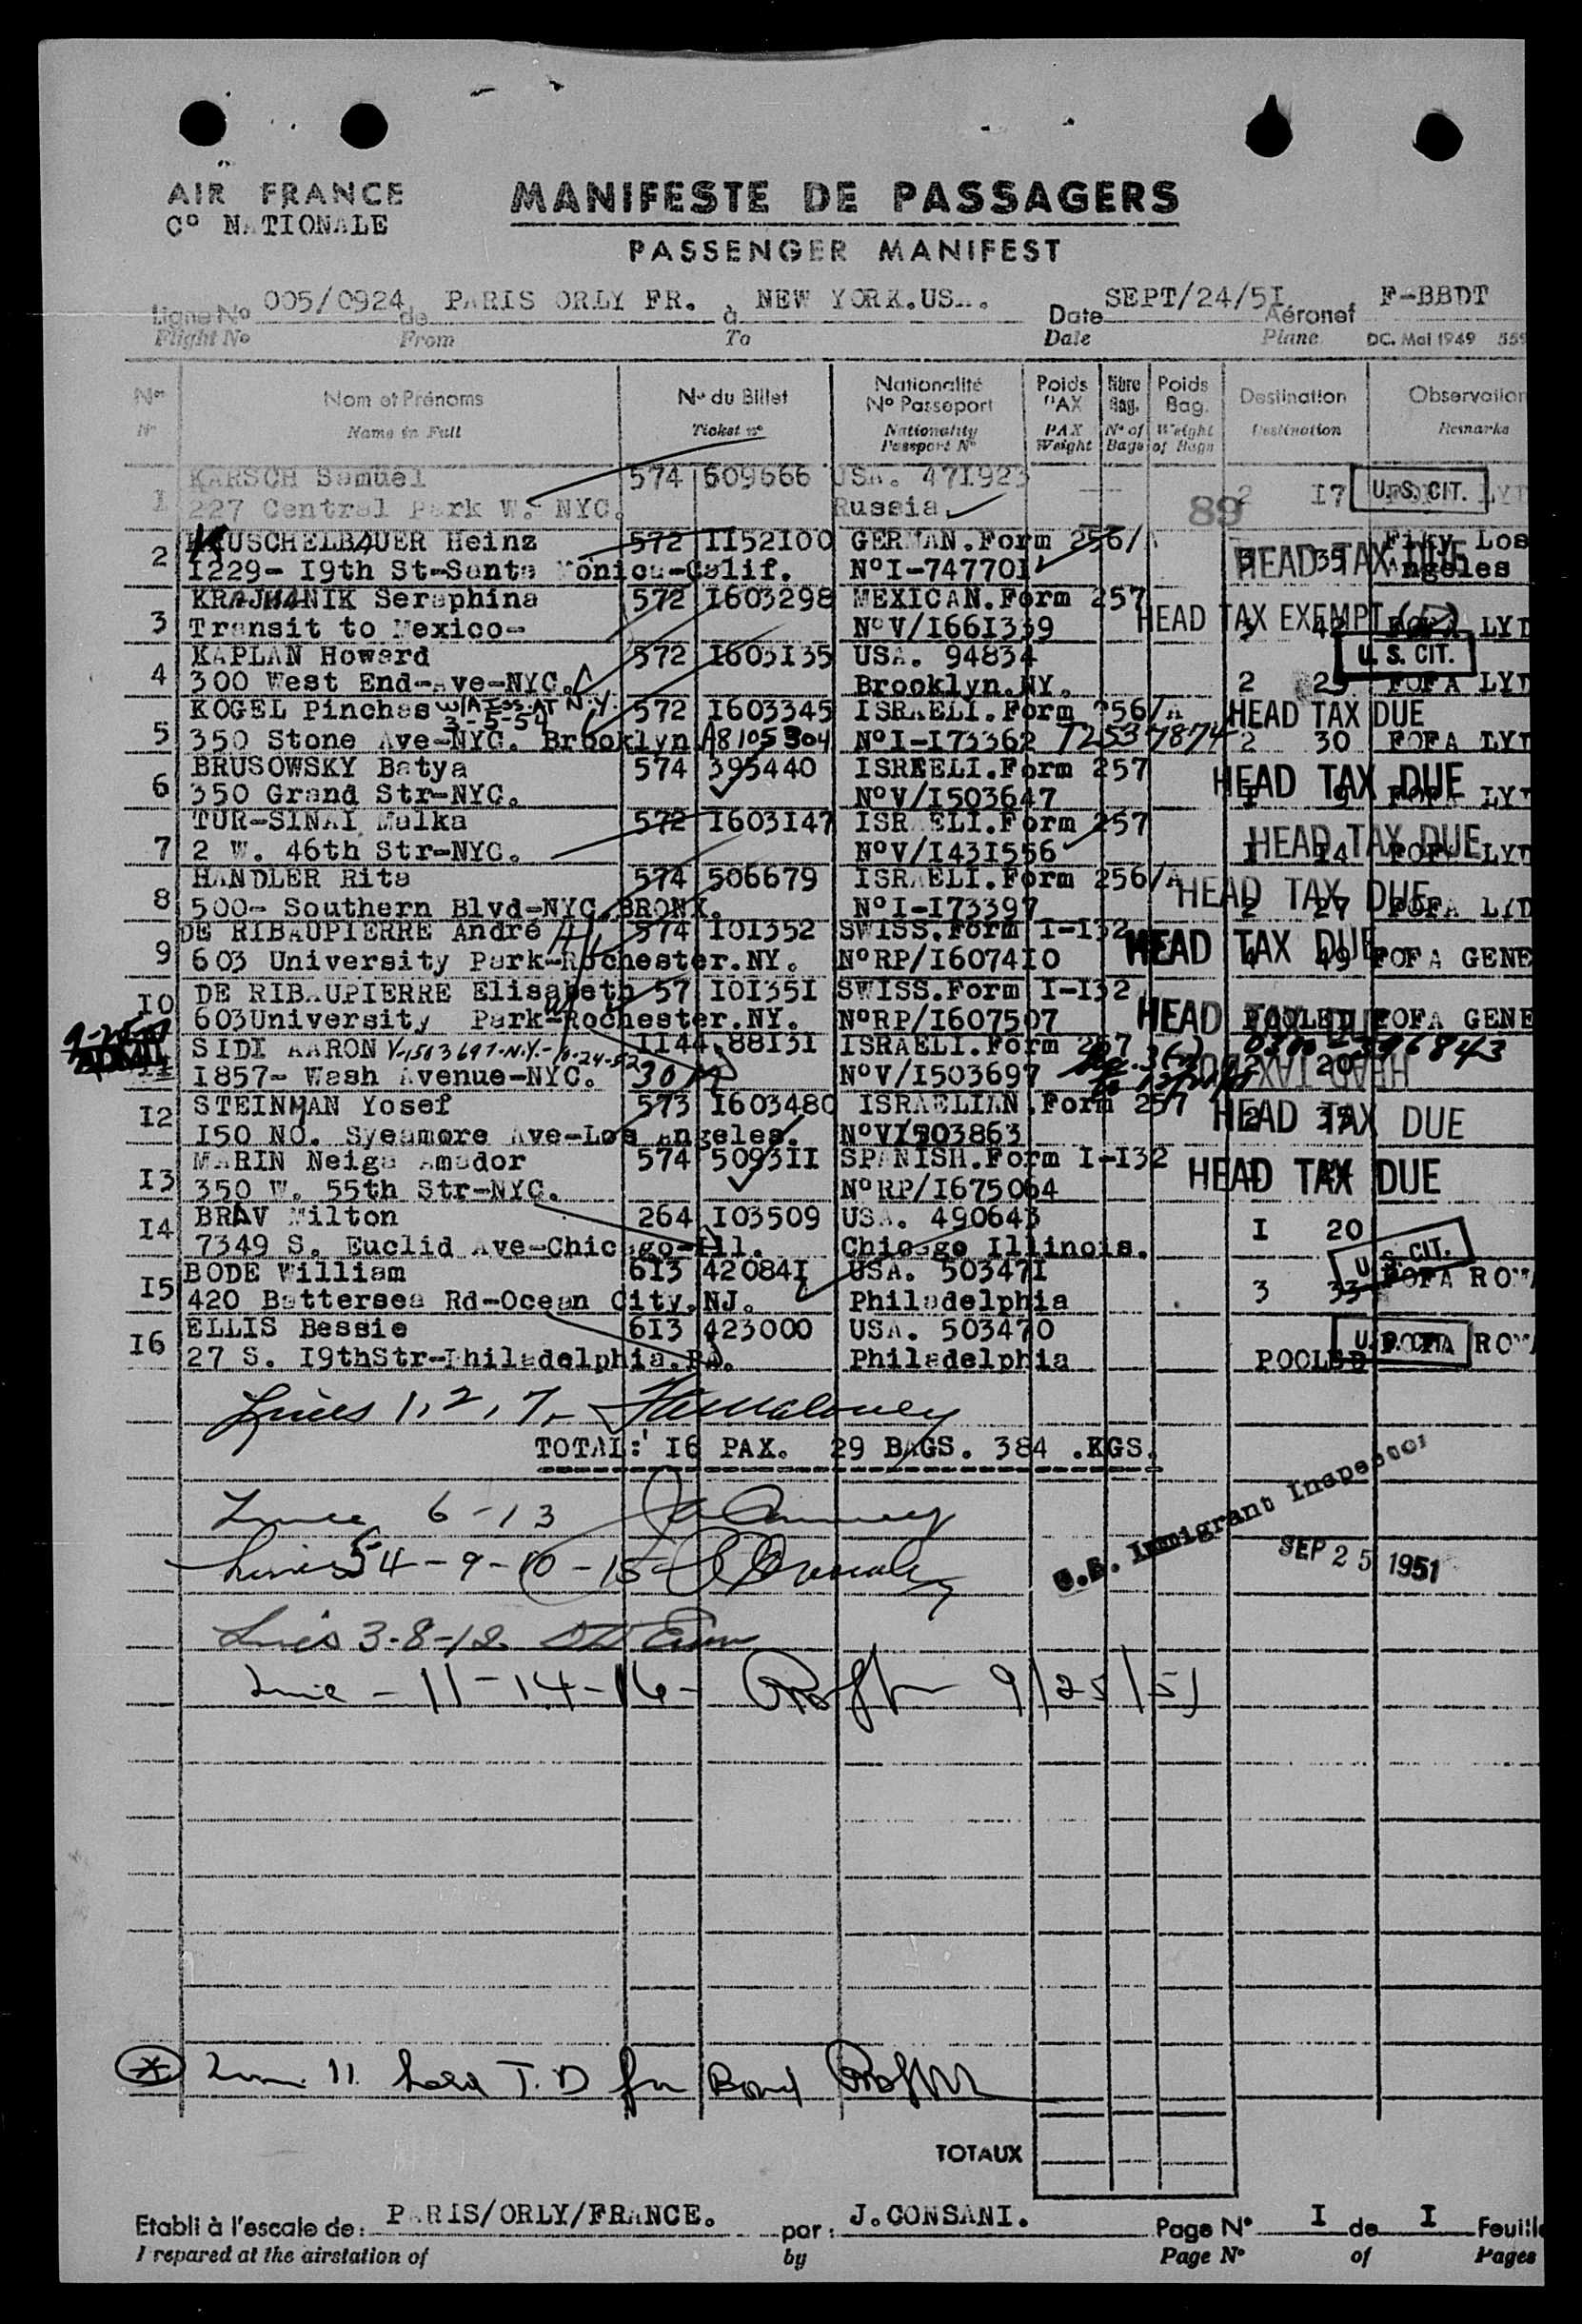 AIR FRANCE
C° NATIONALE
MANIFESTE DE PASSAGERS
PASSENGER MANIFEST
Ligne No 005/0924 de PARIS ORLY FR. à NEW YORK.US Date SEPT/24/5I Aéronef F-BBDT
Flight No From To Date Plane DC. Mai 1949 559
Nos Nom et Prénoms No du Billet Nationalité No Passeport Poids PAX Nbre Bag. Poids Bag. Destination Observation
N° Name in Full Ticket n° Nationality Passport N° PAX Weight N° of Bags Weight of Bags Destination Remarks
1 KARSCH Samuel 574 509666 USA. 47I923
227 Central Park W. NYC. Russia 89 2 I7 U.S. CIT. LYD
2 KAUSCHELBAUER Heinz 572 II52I00 GERMAN.Form 256/ Fiky Los
I229- I9th St-Santa Monica-Calif. N°I-74770I HEAD TAX DUE 35 Angeles
3 KRAJMANIK Seraphina 572 I603298 MEXICAN.Form 257
Transit to Mexico- N°V/I66I339 HEAD TAX EXEMPT FOFA LYD
4 KAPLAN Howard 572 I603I35 USA. 94834 U. S. CIT.
300 West End-Ave-NYC. Brooklyn.NY. 2 FOFA LYD
5 KOGEL Pinches W/A ISS. AT N.Y. 3-5-54 572 I603345 ISRAELI.Form 256/A HEAD TAX DUE
350 Stone Ave-NYC. Brooklyn A8105304 N°I-I73362 T2537874 2 30 FOFA LYD
6 BRUSOWSKY Batya 574 395440 ISREELI.Form 257 HEAD TAX DUE
350 Grand Str-NYC. N°V/I503647 I 9 FOFA LYD
7 TUR-SINAI Malka 572 I603I47 ISRAELI.Form 257 HEAD TAX DUE
2 W. 46th Str-NYC. N°V/I43I556 I I4 FOFA LYD
8 HANDLER Rita 574 506679 ISRAELI.Form 256/A HEAD TAX DUE
500- Southern Blvd-NYC.BRONX. N°I-I73397 2 27 FOFA LYD
9 DE RIBAUPIERRE André 574 I0I352 SWISS.Form I-I32 HEAD TAX DUE
603 University Park-Rochester.NY. N°RP/I6074I0 4 49 FOFA GENE
I0 DE RIBAUPIERRE Elisabeth 57 I0I35I SWISS.Form I-I32 HEAD TAX DUE
603University Park-Rochester.NY. N°RP/I607507 POOLED FOFA GENE
II SIDI AARON V-1503697-N.Y.-10-24-52 II44 88I3I ISRAELI.Form 257 0300-396843
I857- Wash Avenue-NYC. N°V/I503697 2 20 HEAD TAX DUE
I2 STEINMAN Yosef 573 I603480 ISRAELIAN.Form 257 HEAD TAX DUE
I50 NO. Sycamore Ave-Los Angeles. N°V/I503863
I3 MARIN Neiga Amador 574 5093II SPANISH.Form I-I32 HEAD TAX DUE
350 W. 55th Str-NYC. N°RP/I675064
I4 BRAV Milton 264 I03509 USA. 490643 I 20
7349 S. Euclid Ave-Chicago-Ill. Chicago Illinois. U. S. CIT.
I5 BODE William 613 42084I USA. 50347I 3 33 FOFA ROMA
420 Battersea Rd-Ocean City.NJ. Philadelphia
I6 ELLIS Bessie 613 423000 USA. 503470 U.S. CIT. FOFA ROMA
27 S. I9thStr-Philadelphia.PA. Philadelphia POOLED
Lines 1, 2, 7,
TOTAL: I6 PAX. 29 BAGS. 384 .KGS.
Lines 6 - 13
Lines 5 4 - 9 - 10 - 15
U.S. Immigrant Inspector
SEP 25 1951
Lines 3-8-12
Line - 11 - 14 - 16 - 9/25/51
Line 11 held T.D for Bond
TOTAUX
Etabli à l'escale de: PARIS/ORLY/FRANCE. par: J.CONSANI. Page N° I de I Feuill
I repared at the airstation of by Page N° of Pages